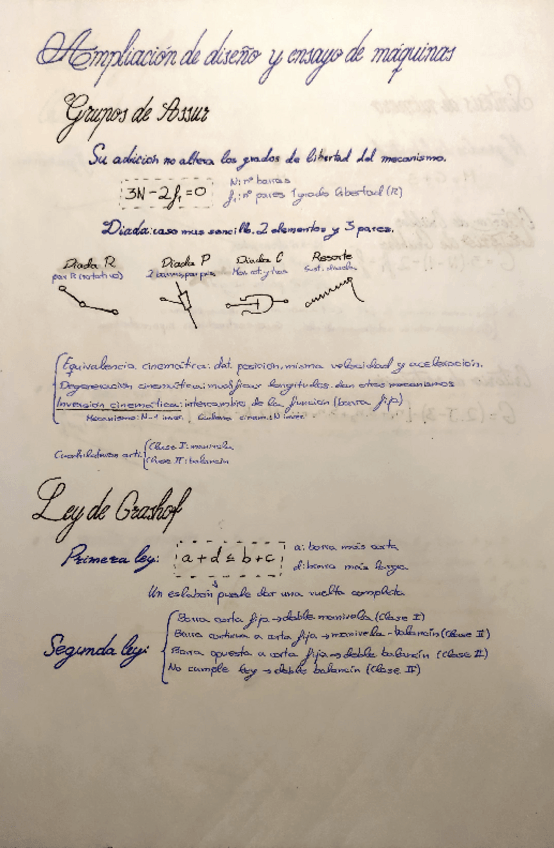 Ampliación de diseño y ensayo de máquinas
Grupos de Assur
Su adición no altera los grados de libertad del mecanismo.
3N-2f₁=0
N: nº barras
f₁: nº pares 1 grado libertad (R)
Diada: caso mas sencillo. 2 elementos y 3 pares.
Diada R
par R (rotativo)
Diada P
Diada C
Resorte
Sust. diada
Equivalencia cinemática: det. posicion, misma velocidad y aceleración.
Degeneración cinemática: modificar longitudes. dan otros mecanismos
Inversión cinemática: intercambio de la función (barra fija)
Mecanismo: N-1 inver. Cadena cinem.: N inver
Cuadriláteros arti.
Clase I: manivela
Clase II: balancín
Ley de Grashof
Primera ley: a+d≤b+c
a: barra más corta
d: barra más larga
Un eslabón puede dar una vuelta completa
Segunda ley:
Barra corta fija → doble manivela (Clase I)
Barra continua a corta fija → manivela-balancín (Clase II)
Barra opuesta a corta fija → doble balancín (Clase II)
No cumple ley → doble balancín (Clase II)